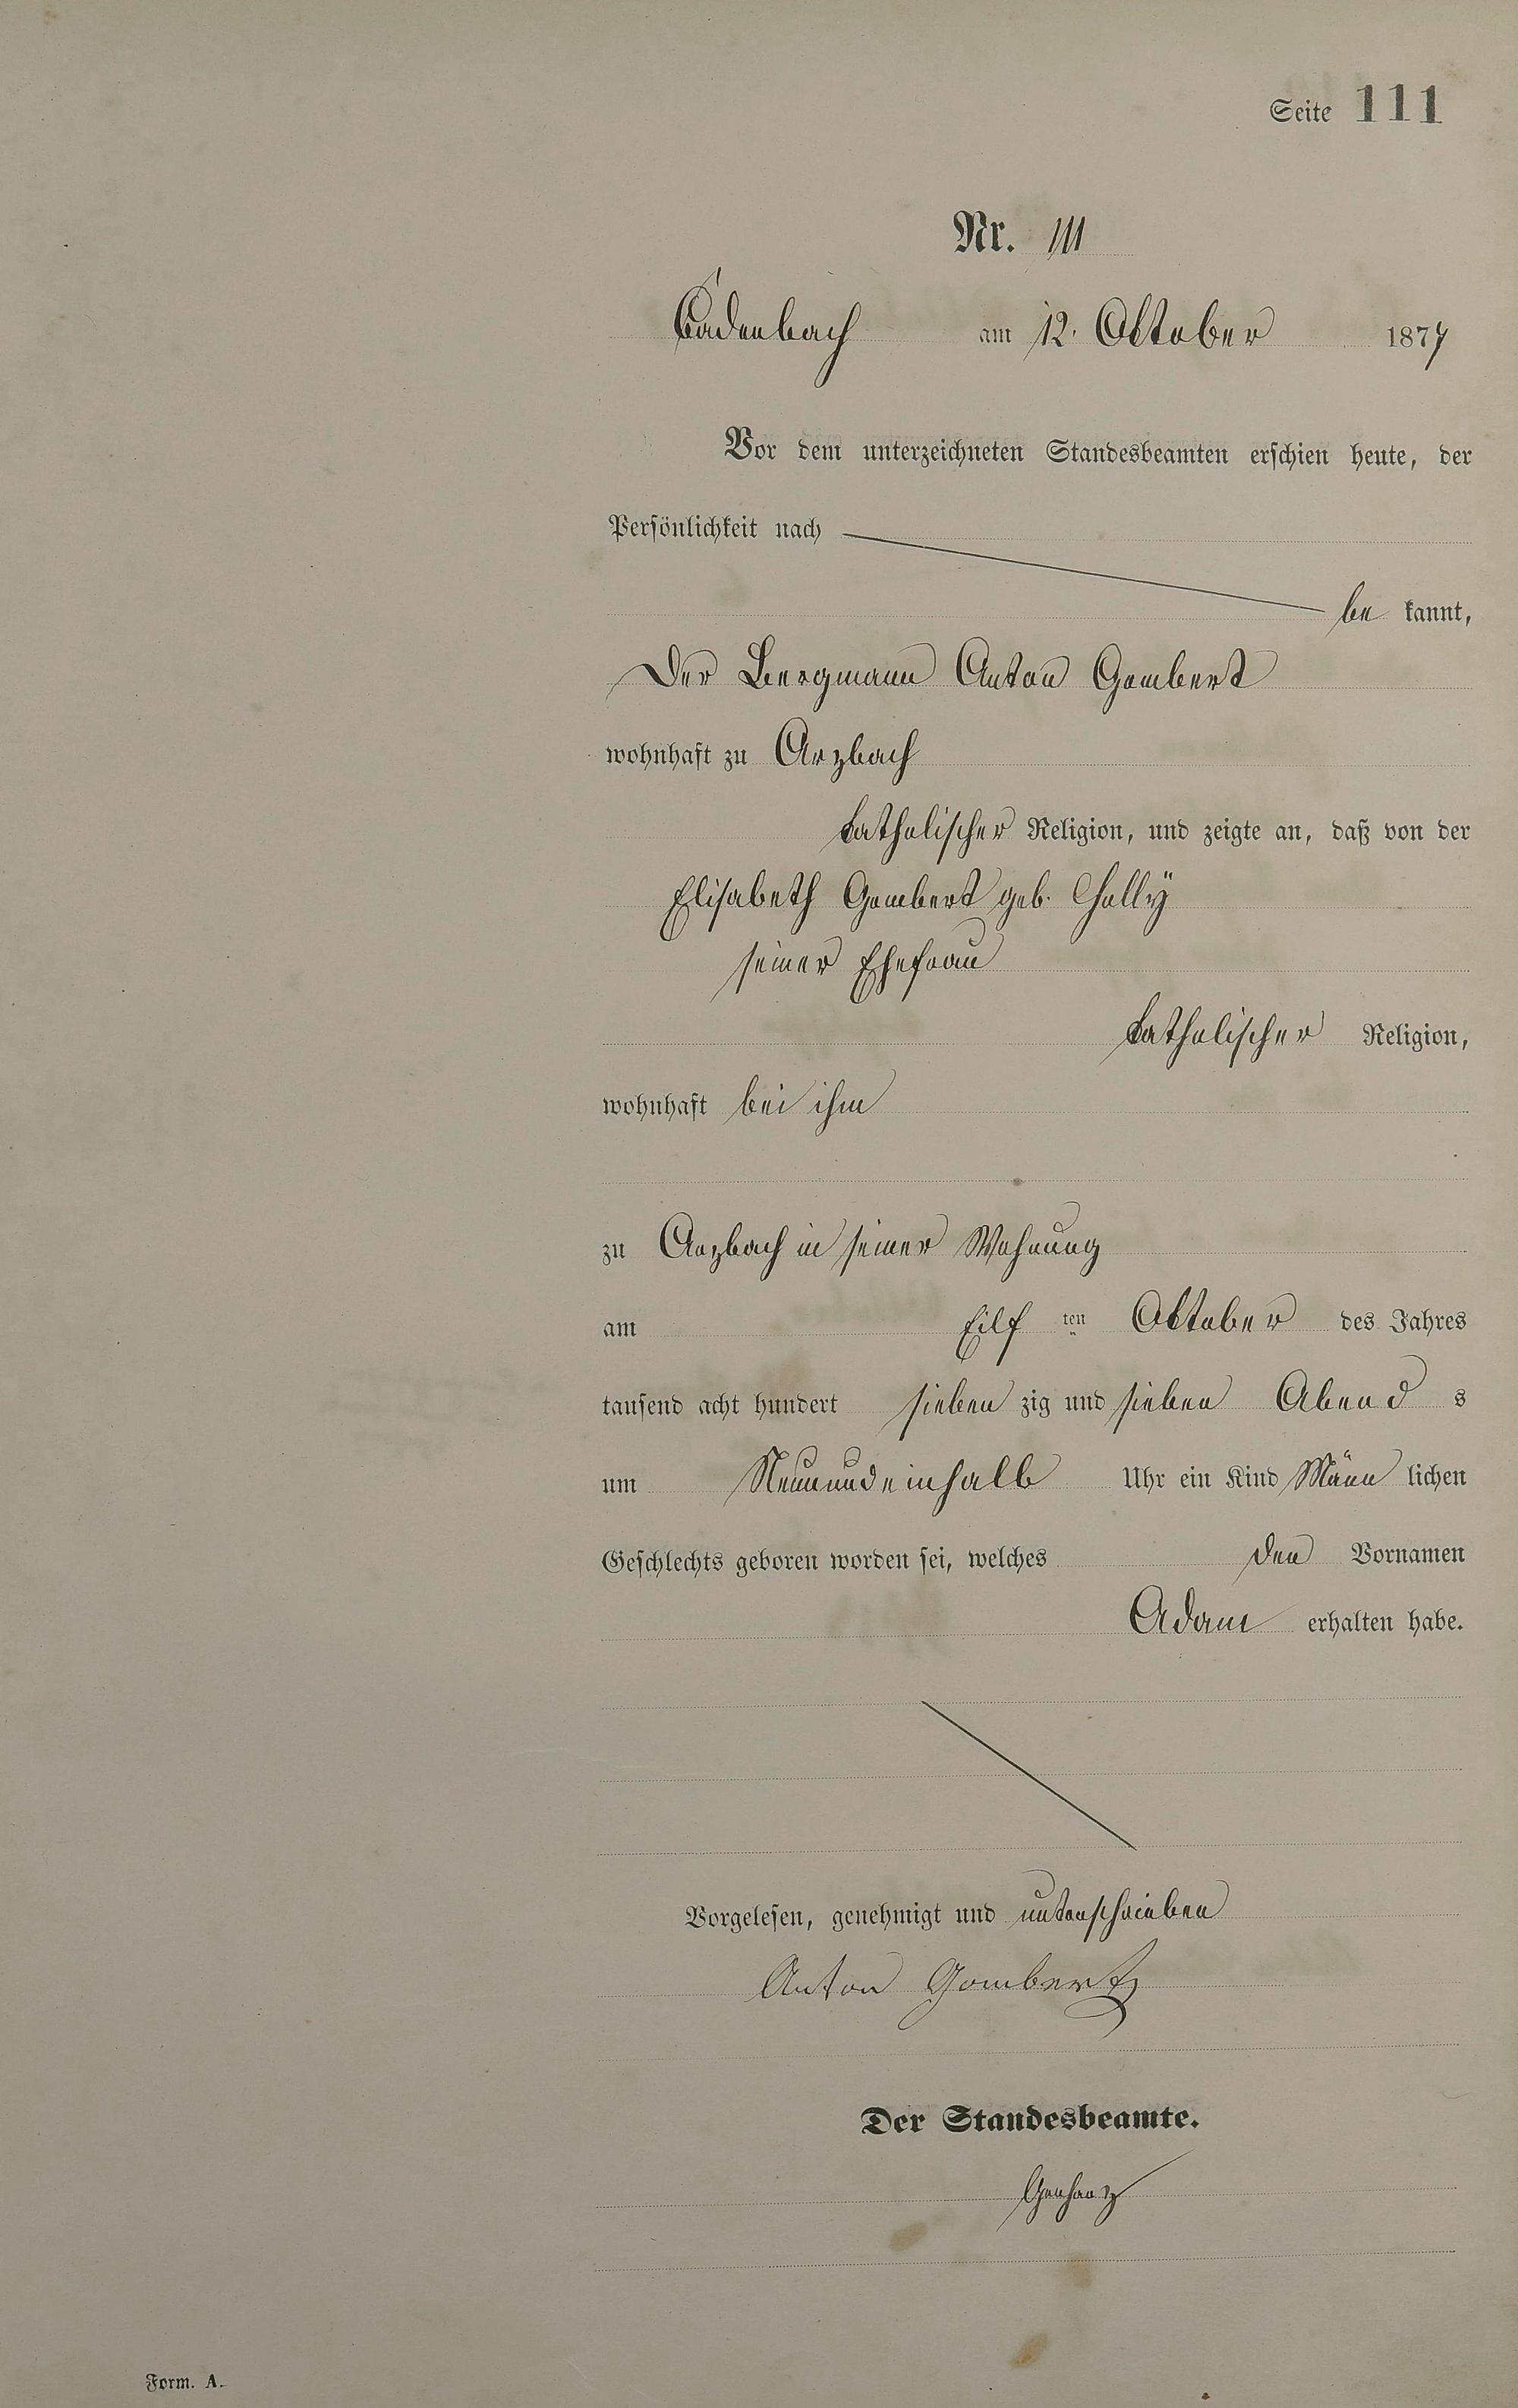 Seite 111
Nr. 111
Cadenbach am 12. Oktober 1877
Vor dem unterzeichneten Standesbeamten erschien heute, der
Persönlichkeit nach
be kannt,
Der Bergmann Anton Gombert
wohnhaft zu Arzbach
katholischer Religion, und zeigte an, daß von der
Elisabeth Gombert geb. Cholly
seiner Ehefrau
katholischer Religion,
wohnhaft bei ihm
zu Arzbach in seiner Wohnung
am Eilf ten Oktober des Jahres
tausend acht hundert sieben zig und sieben Abend s
um Neunundeinhalb Uhr ein Kind Männ lichen
Geschlechts geboren worden sei, welches den Vornamen
Adam erhalten habe.
Vorgelesen, genehmigt und unterschrieben
Anton Gombertz
Der Standesbeamte.
Form. A.